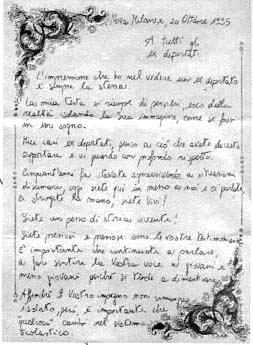 Nova Milanese, 20 Ottobre 1995
A tutti gli
ex deportati.
L'impressione che ho nel vedere un ex deportato
è sempre la stessa.
La mia testa si riempe di pensieri, esco dalla
realtà isolando la sua immagine, come se fossi
in un sogno.
Miei cari ex deportati, penso a ciò che avete dovuto
sopportare e vi guardo con profondo rispetto.
Cinquant'anni fa stavate sopravvivendo a situazioni
disumane, oggi siete qui in mezzo a noi e ci parlate,
ci stringete la mano, siete vivi!
Siete un pezzo di storia vivente!
Siete preziosi e preziose sono le vostre testimonianze
È importante che continuiate a parlare,
a far sentire la vostra voce ai giovani e
meno giovani perché si tende a dimenticare.
Affinché il Vostro impegno non rimanga
isolato però, è importante che
qualcosa cambi nel sistema
scolastico.